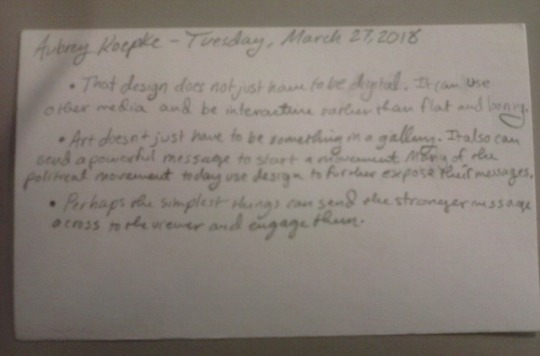 Aubrey Koepke - Tuesday, March 27, 2018
• That design does not just have to be digital. It can use
other media and be interactive rather than flat and boring.
• Art doesn't just have to be something in a gallery. It also can
send a powerful message to start a movement. Many of the
political movement today use design to further expose their messages.
• Perhaps the simplest things can send the stronger message
across to the viewer and engage them.